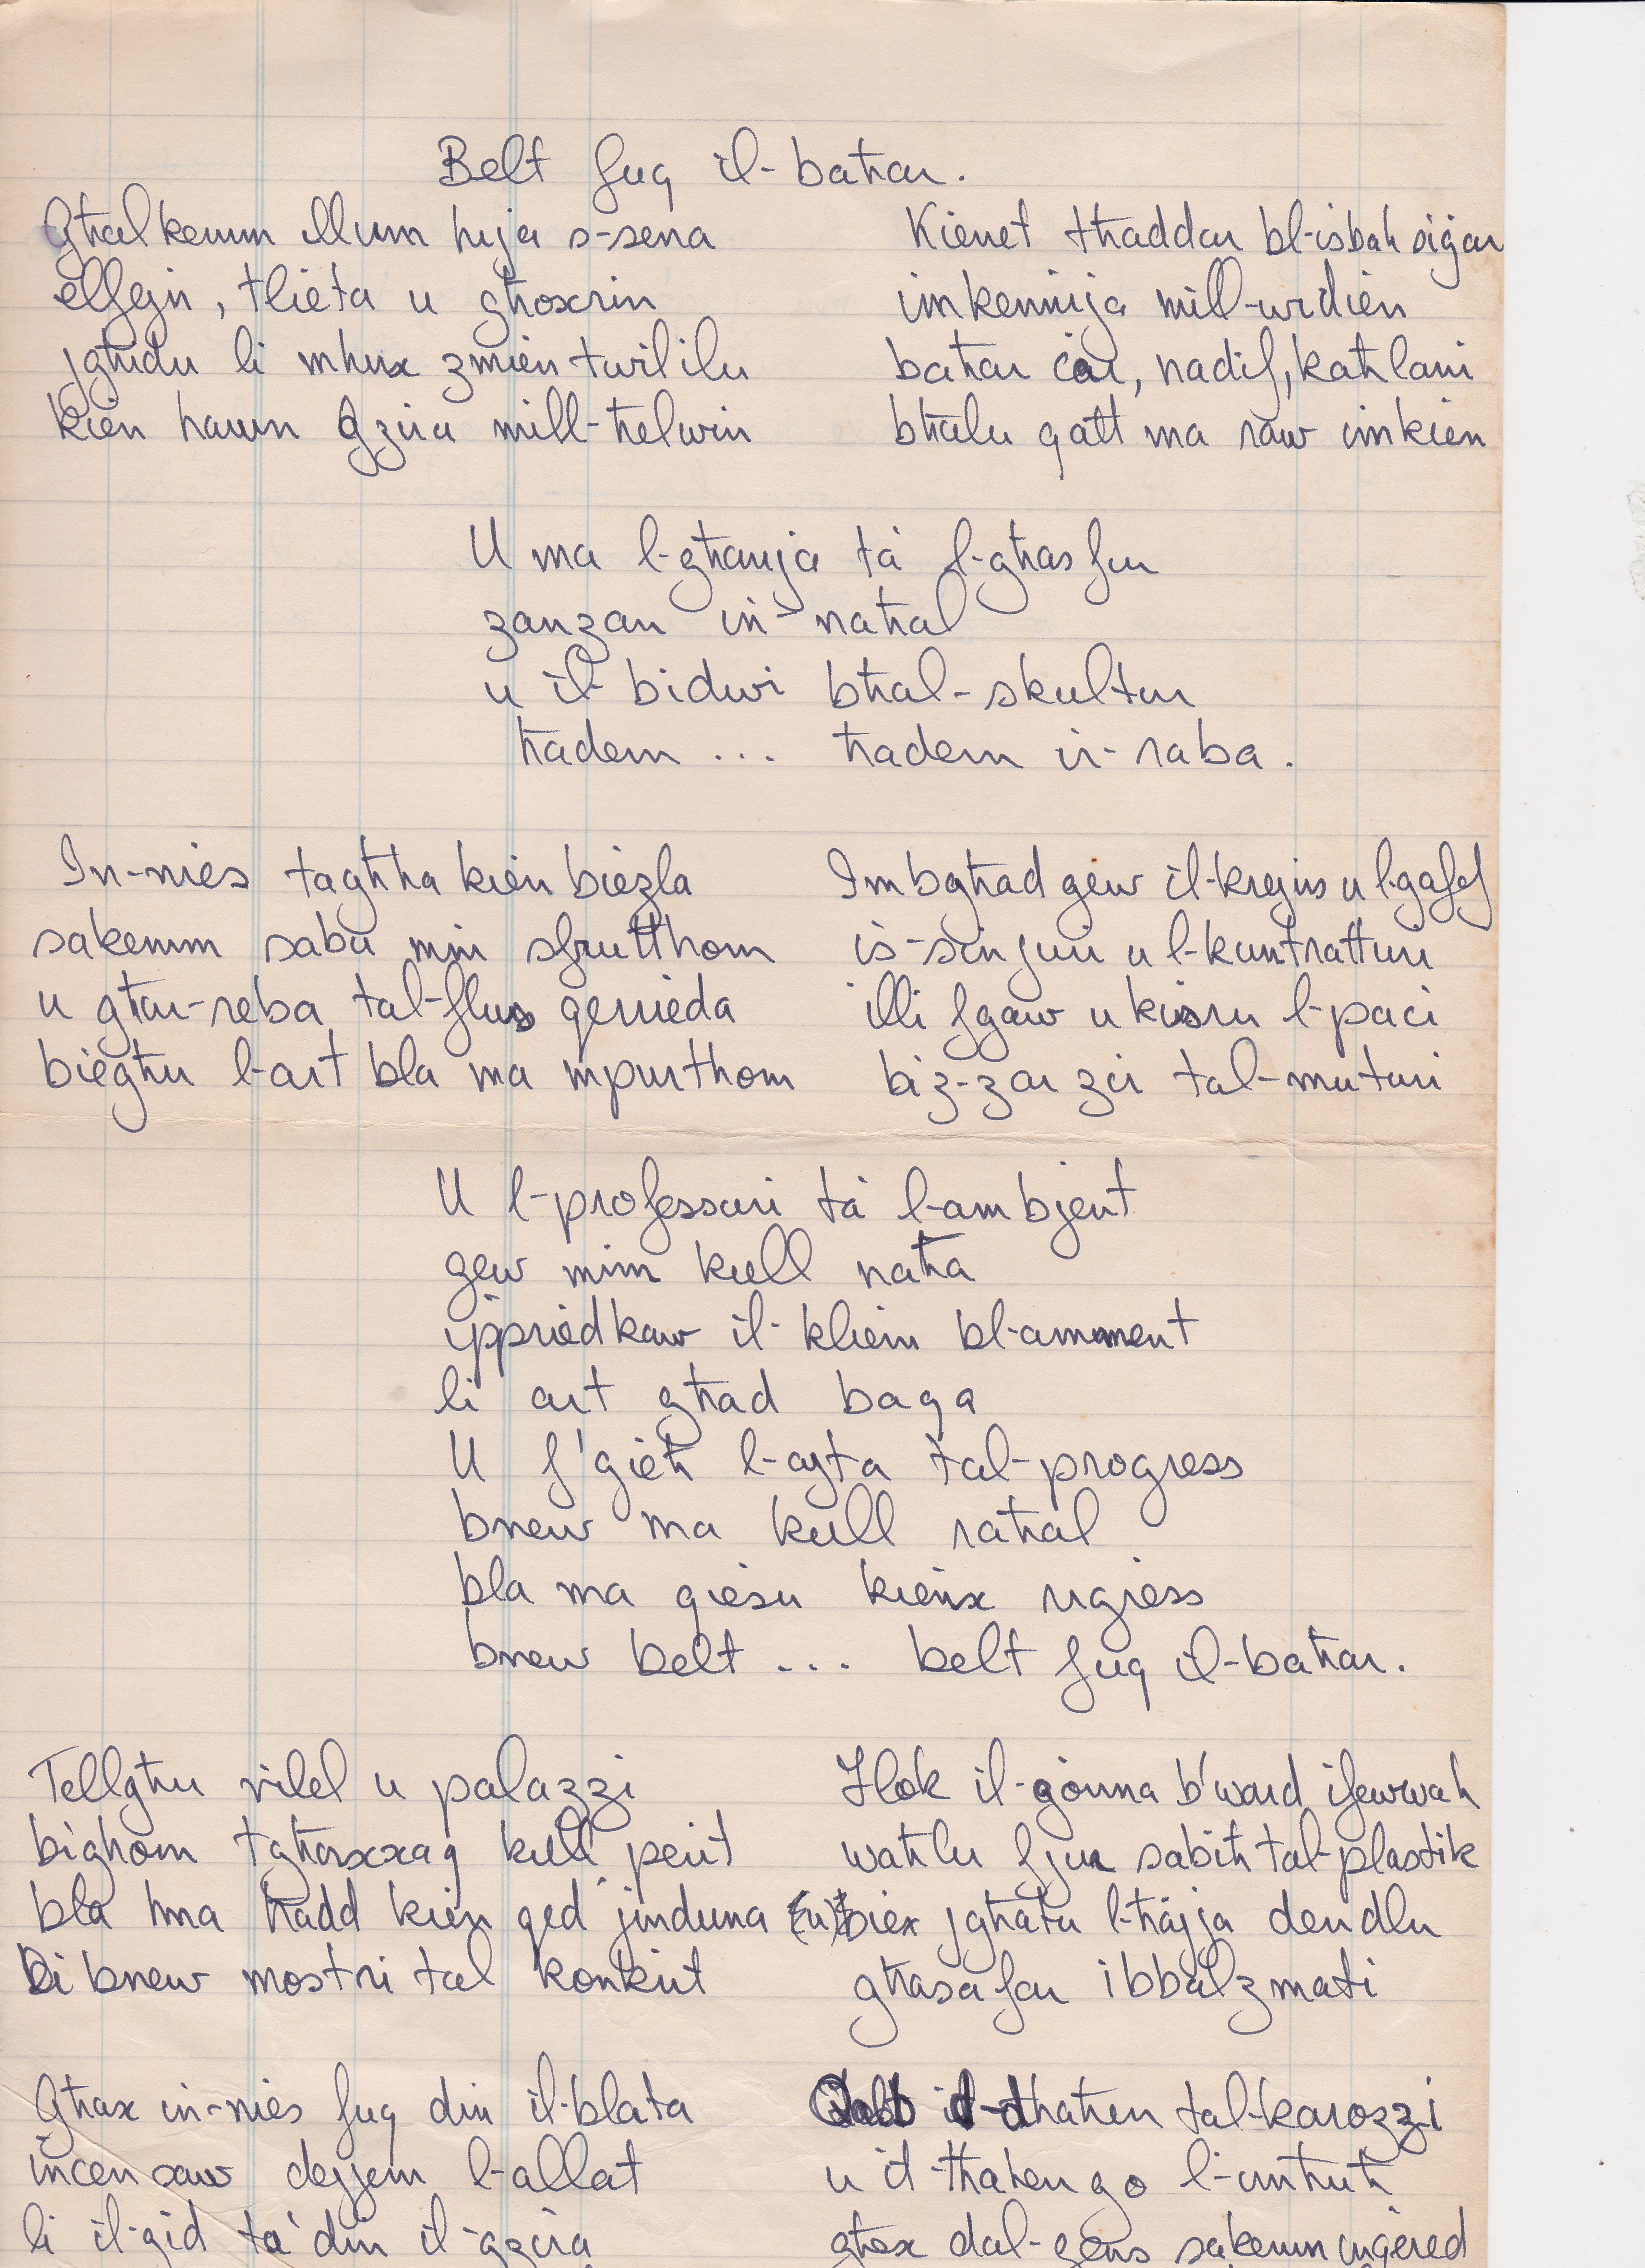 Belt fuq il-baħar.
Għalkemm illum hija s-sena
elfejn, tlieta u għoxrin
jgħidu li mhux żmien twil ilu
kien hawn Gzira mill-ħelwin
Kienet tħaddar bl-isbaħ siġar
imkennija mill-widien
baħar ċar, nadif, kaħlani
bħalu qatt ma raw imkien
U ma l-għanja ta' l-għasfur
żanżan in-naħal
u il-bidwi bħal-skultur
ħadem ... ħadem ir-raba.
In-nies tagħha kien bieżla
sakemm saba min sfrutthom
u għar-reba tal-flus qerrieda
biegħu l-art bla ma mpurthom
Imbgħad gew il-krejns u l-gafef
is-sinjuri u l-kuntratturi
illi fgaw u kisru l-paci
biz-zarzir tal-muturi
U l-professuri ta' l-ambjent
gew minn kull naħa
ippriedkaw il-kliem bl-amment
li art għad baqa
U f'gieħ l-ajta tal-progress
bnew ma kull raħal
bla ma qiesu kienx rigress
bnew belt ... belt fuq il-baħar.
Tellgħu vilel u palazzi
bihom tgħaxxaq kull perit
bla hma ħadd kien qed jinduna
Li bnew mostri tal konkrit
Flok il-gonna b'ward ifewwaħ
waħlu fjur sabiħ tal-plastik
(u) biex jgħatu l-ħajja dendlu
għasafar ibbalzmati
Għax in-nies fuq din il-blata
incensaw dejjem l-allat
li il-gid ta' din il-gzira
Qabb id-dħaħen tal-karozzi
u it-tħaħen go l-imħuħ
għax dal-gens sakemm ingered